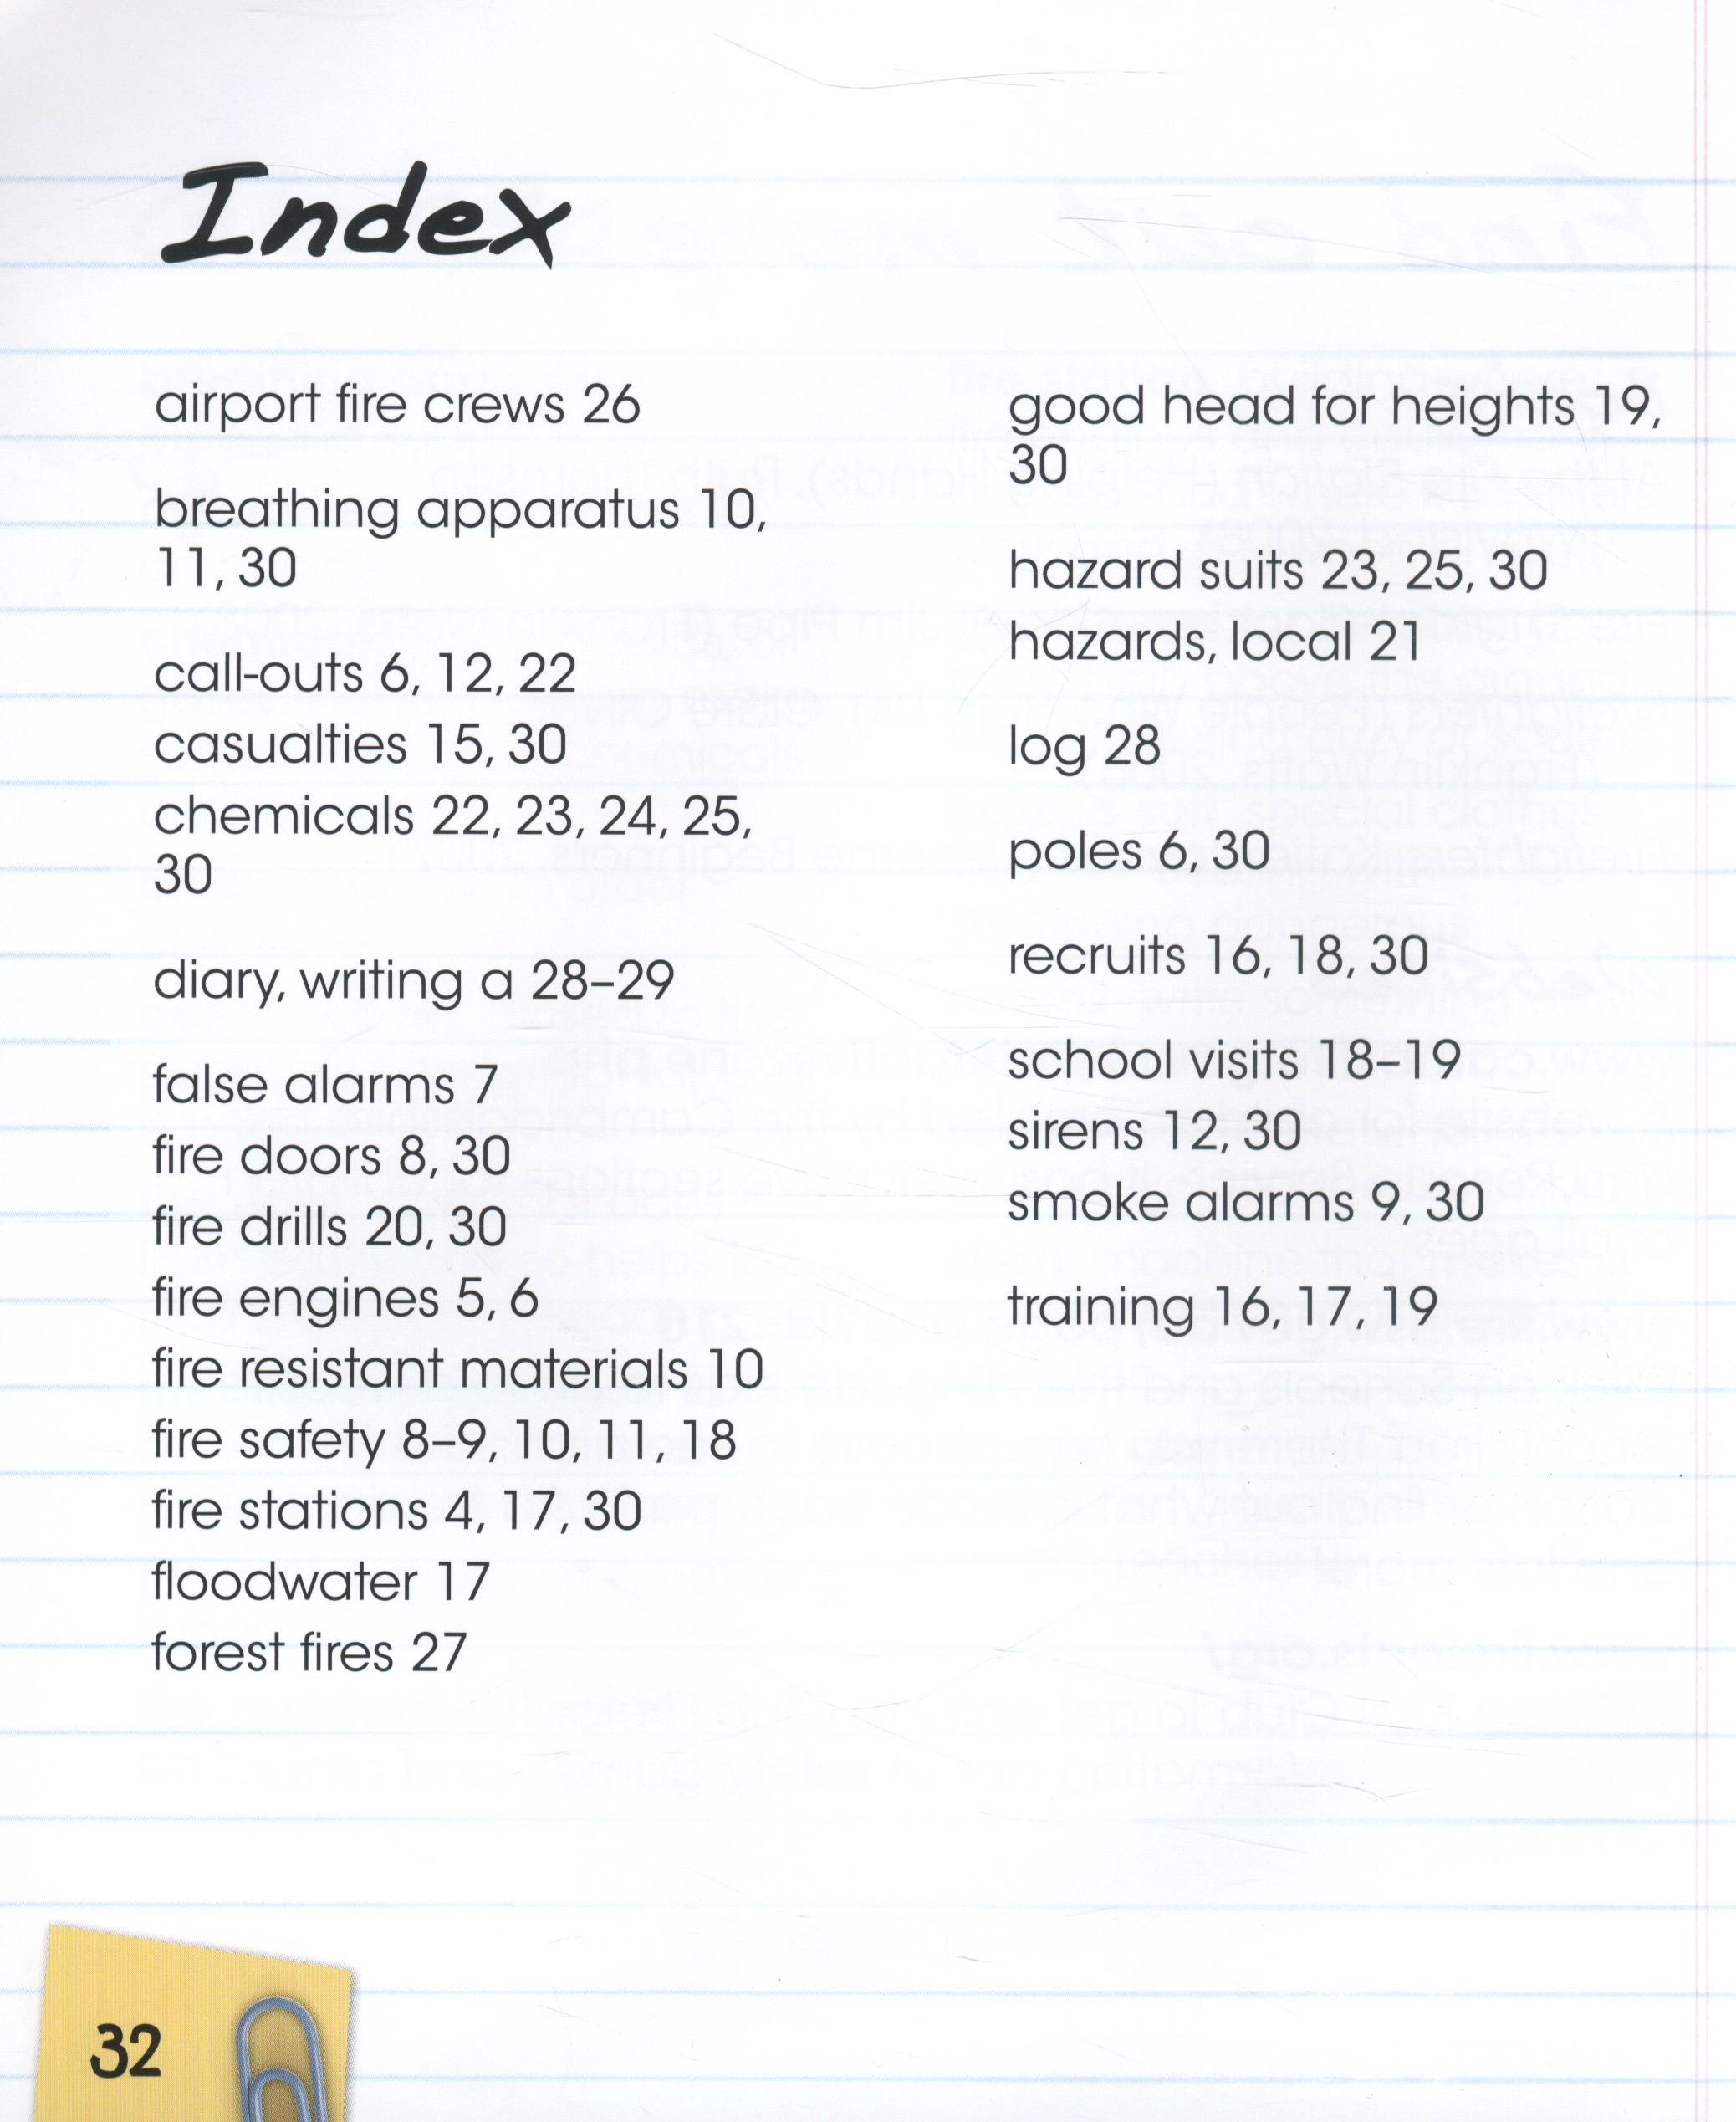 Index
airport fire crews 26
breathing apparatus 10,
11, 30
call-outs 6, 12, 22
casualties 15, 30
chemicals 22, 23, 24, 25,
30
diary, writing a 28–29
false alarms 7
fire doors 8, 30
fire drills 20, 30
fire engines 5, 6
fire resistant materials 10
fire safety 8–9, 10, 11, 18
fire stations 4, 17, 30
floodwater 17
forest fires 27
good head for heights 19,
30
hazard suits 23, 25, 30
hazards, local 21
log 28
poles 6, 30
recruits 16, 18, 30
school visits 18–19
sirens 12, 30
smoke alarms 9, 30
training 16, 17, 19
32